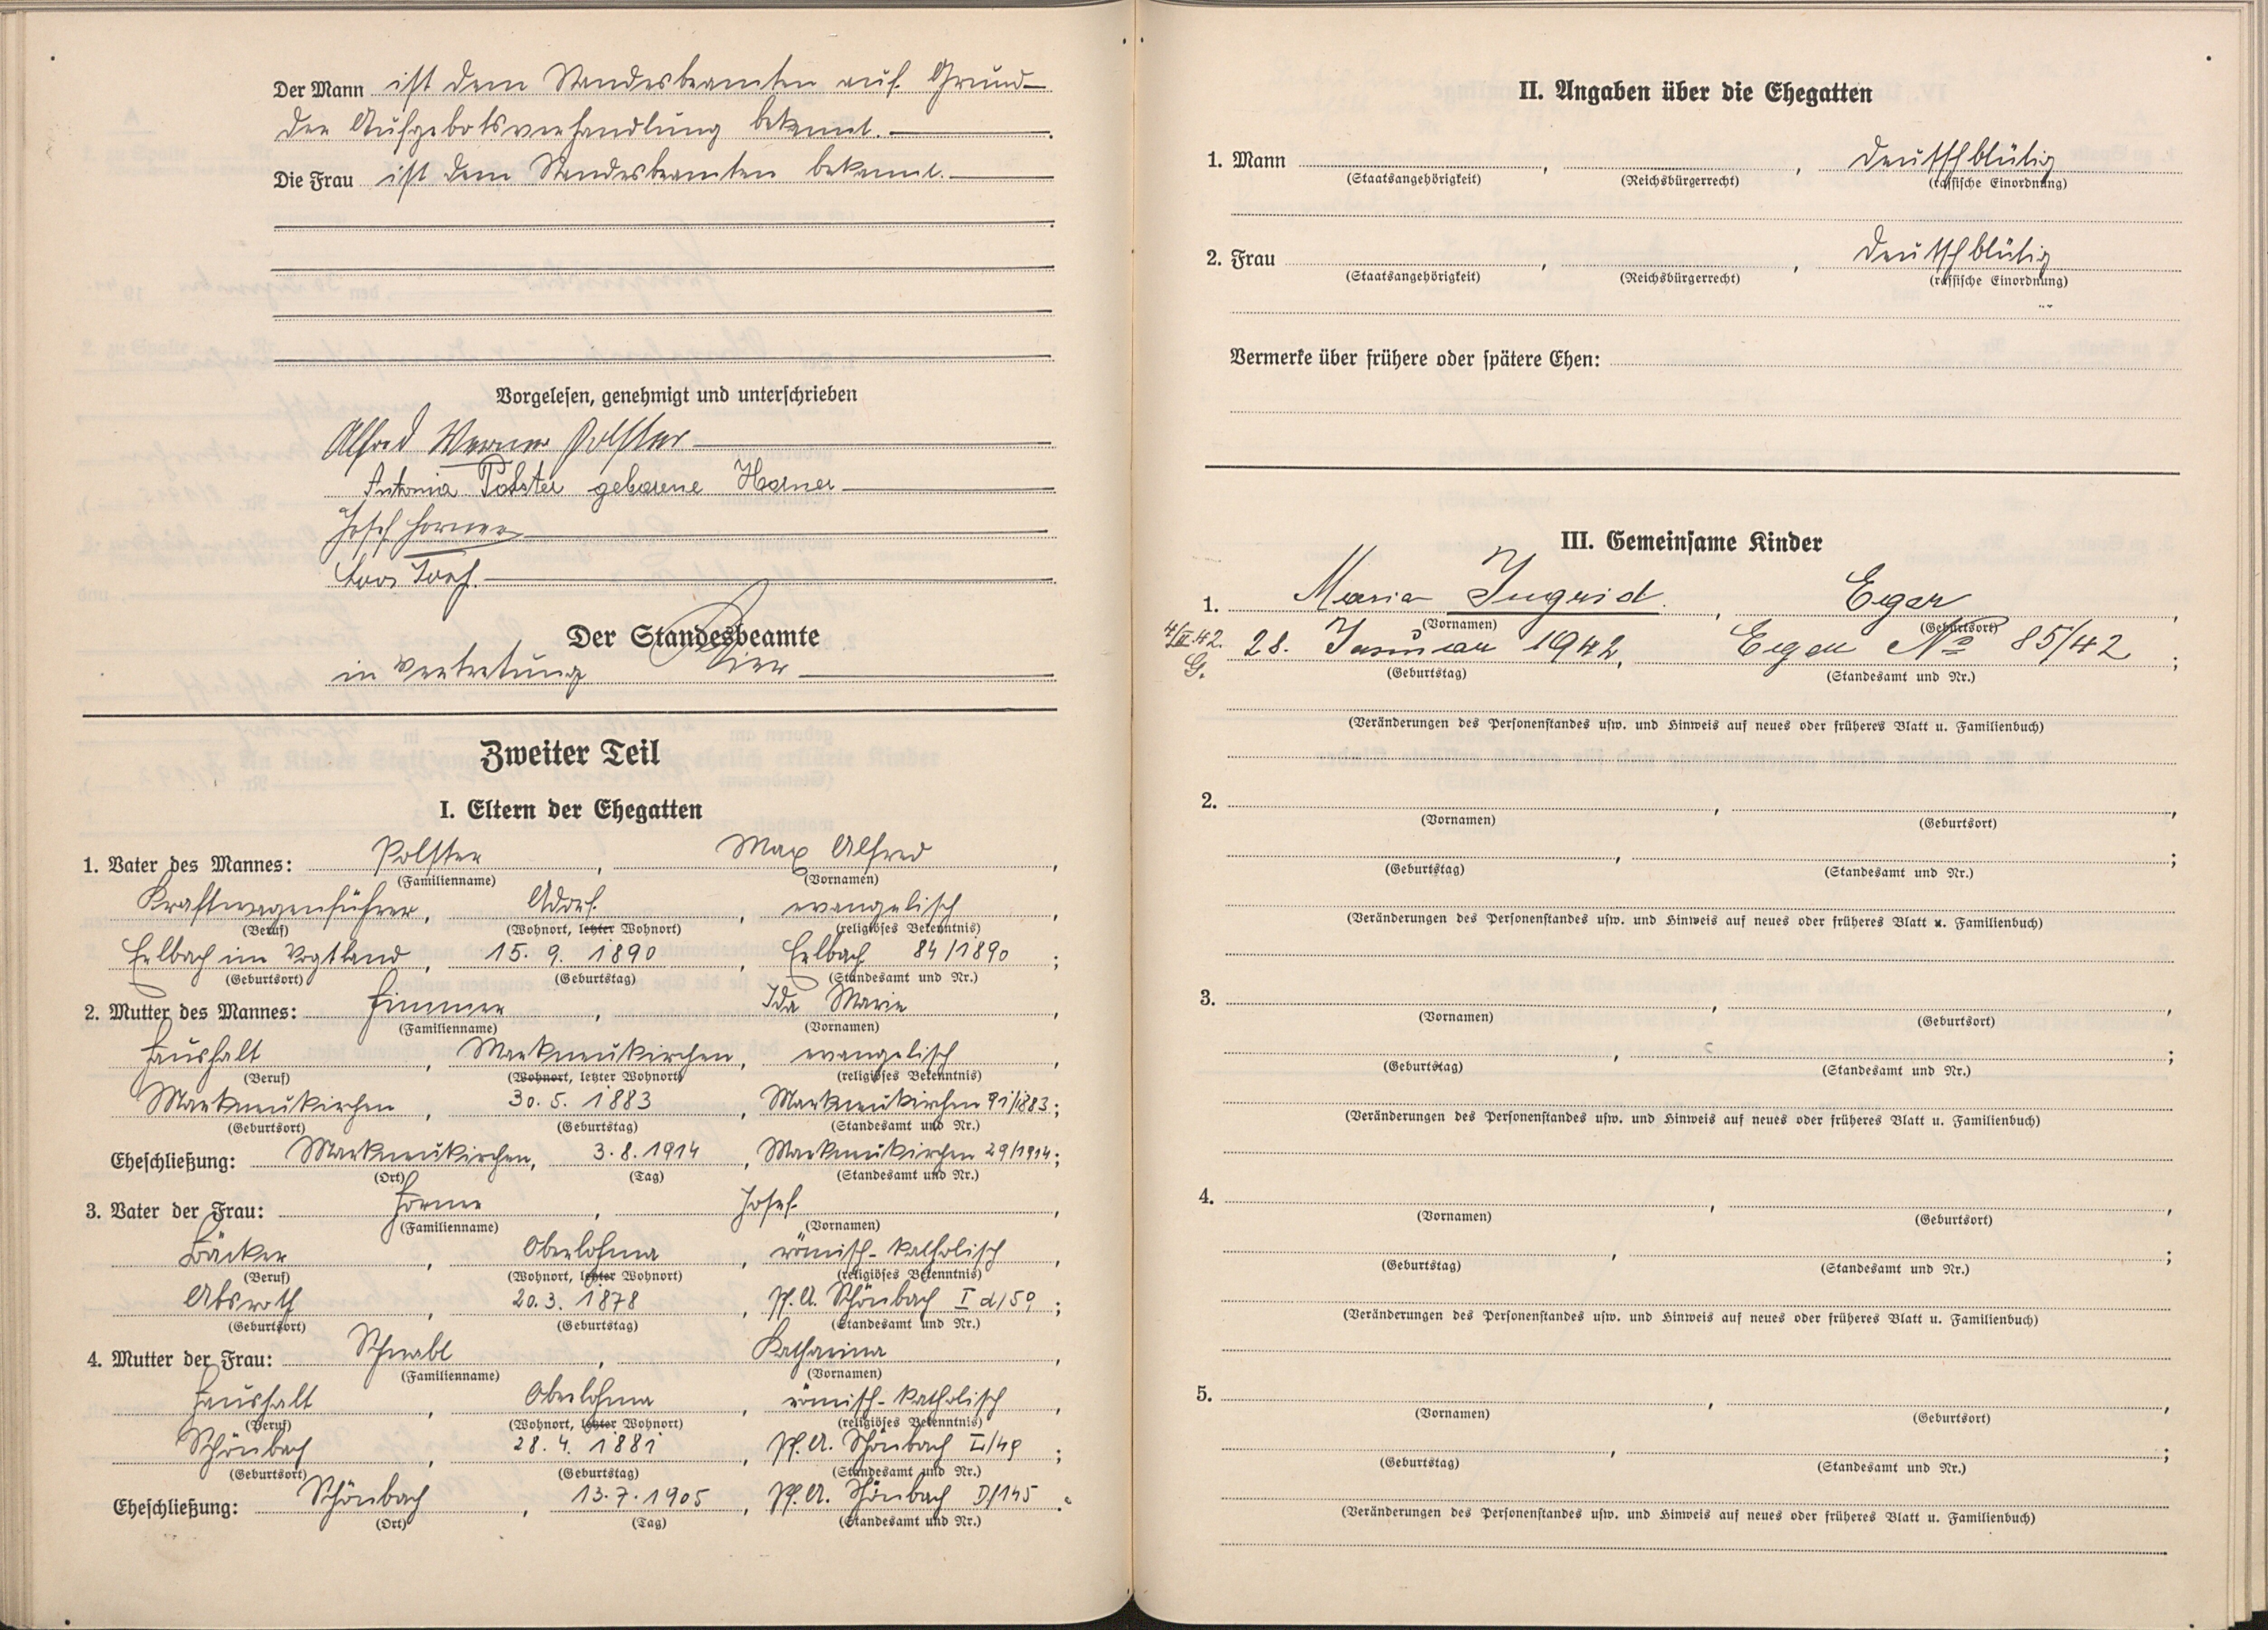 Der Mann ist dem Standesbeamten auf Grund
der Aufgebotsverhandlung bekannt.
Die Frau ist dem Standesbeamten bekannt.
Vorgelesen, genehmigt und unterschrieben
Alfred Werner Polster
Antonia Polster geborene Horner
Josef Horner
Der Standesbeamte
in Vertretung
Zweiter Teil
I. Eltern der Ehegatten
1. Vater des Mannes: Polster, Max Alfred,
(Familienname) (Vornamen)
Kraftwagenführer, Adorf, evangelisch,
(Beruf) (Wohnort, letzter Wohnort) (religiöses Bekenntnis)
Erlbach im Vogtland, 15. 9. 1890, Erlbach 84/1890;
(Geburtsort) (Geburtstag) (Standesamt und Nr.)
2. Mutter des Mannes: , Ida Marie,
(Familienname) (Vornamen)
Haushalt, Markneukirchen, evangelisch,
(Beruf) (Wohnort, letzter Wohnort) (religiöses Bekenntnis)
Markneukirchen, 30. 5. 1883, Markneukirchen 91/1883;
(Geburtsort) (Geburtstag) (Standesamt und Nr.)
Eheschließung: Markneukirchen, 3. 8. 1914, Markneukirchen 29/1914;
(Ort) (Tag) (Standesamt und Nr.)
3. Vater der Frau: Horner, Josef,
(Familienname) (Vornamen)
Bäcker, Oberlohma, römisch-katholisch,
(Beruf) (Wohnort, letzter Wohnort) (religiöses Bekenntnis)
Absroth, 20. 3. 1878, Pf. A. Schönbach I d/59;
(Geburtsort) (Geburtstag) (Standesamt und Nr.)
4. Mutter der Frau: Schnabl, Katharina,
(Familienname) (Vornamen)
Haushalt, Oberlohma, römisch-katholisch,
(Beruf) (Wohnort, letzter Wohnort) (religiöses Bekenntnis)
Schönbach, 28. 4. 1881, Pf. A. Schönbach I/49;
(Geburtsort) (Geburtstag) (Standesamt und Nr.)
Eheschließung: Schönbach, 13. 7. 1905, Pf. A. Schönbach D/145.
(Ort) (Tag) (Standesamt und Nr.)
II. Angaben über die Ehegatten
1. Mann , , deutschblütig
(Staatsangehörigkeit) (Reichsbürgerrecht) (rassische Einordnung)
2. Frau , , deutschblütig
(Staatsangehörigkeit) (Reichsbürgerrecht) (rassische Einordnung)
Vermerke über frühere oder spätere Ehen:
III. Gemeinsame Kinder
1. Maria Ingrid, Eger,
(Vornamen) (Geburtsort)
4/II.42. 28. Januar 1942, Eger No 85/42;
G.
(Geburtstag) (Standesamt und Nr.)
(Veränderungen des Personenstandes usw. und Hinweis auf neues oder früheres Blatt u. Familienbuch)
2. , ,
(Vornamen) (Geburtsort)
, ;
(Geburtstag) (Standesamt und Nr.)
(Veränderungen des Personenstandes usw. und Hinweis auf neues oder früheres Blatt u. Familienbuch)
3. , ,
(Vornamen) (Geburtsort)
, ;
(Geburtstag) (Standesamt und Nr.)
(Veränderungen des Personenstandes usw. und Hinweis auf neues oder früheres Blatt u. Familienbuch)
4. , ,
(Vornamen) (Geburtsort)
, ;
(Geburtstag) (Standesamt und Nr.)
(Veränderungen des Personenstandes usw. und Hinweis auf neues oder früheres Blatt u. Familienbuch)
5. , ,
(Vornamen) (Geburtsort)
, ;
(Geburtstag) (Standesamt und Nr.)
(Veränderungen des Personenstandes usw. und Hinweis auf neues oder früheres Blatt u. Familienbuch)